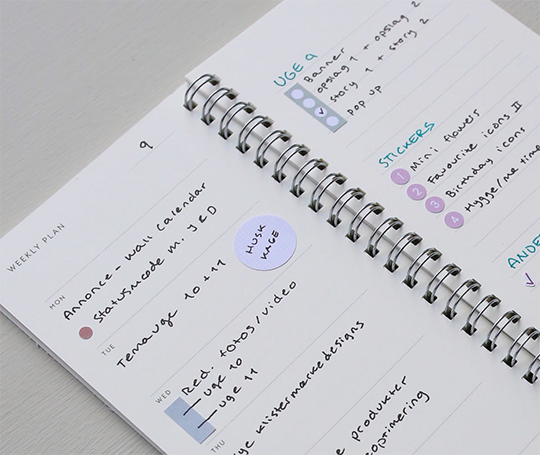 9
WEEKLY PLAN
MON
Annonce - Wall Calendar
Statusmøde m. JED
TUE
Temauge 10 + 11
HUSK
KAGE
WED
Red. fotos/video
— uge 10
— uge 11
THU
ye klistermærkedesigns
e produkter
oprimering
UGE 9
Banner
opslag 1 + opslag 2
story 1 + story 2
Pop up
STICKERS
1 Mini flowers
2 Favourite icons II
3 Birthday icons
4 Hygge/me time
ANDE